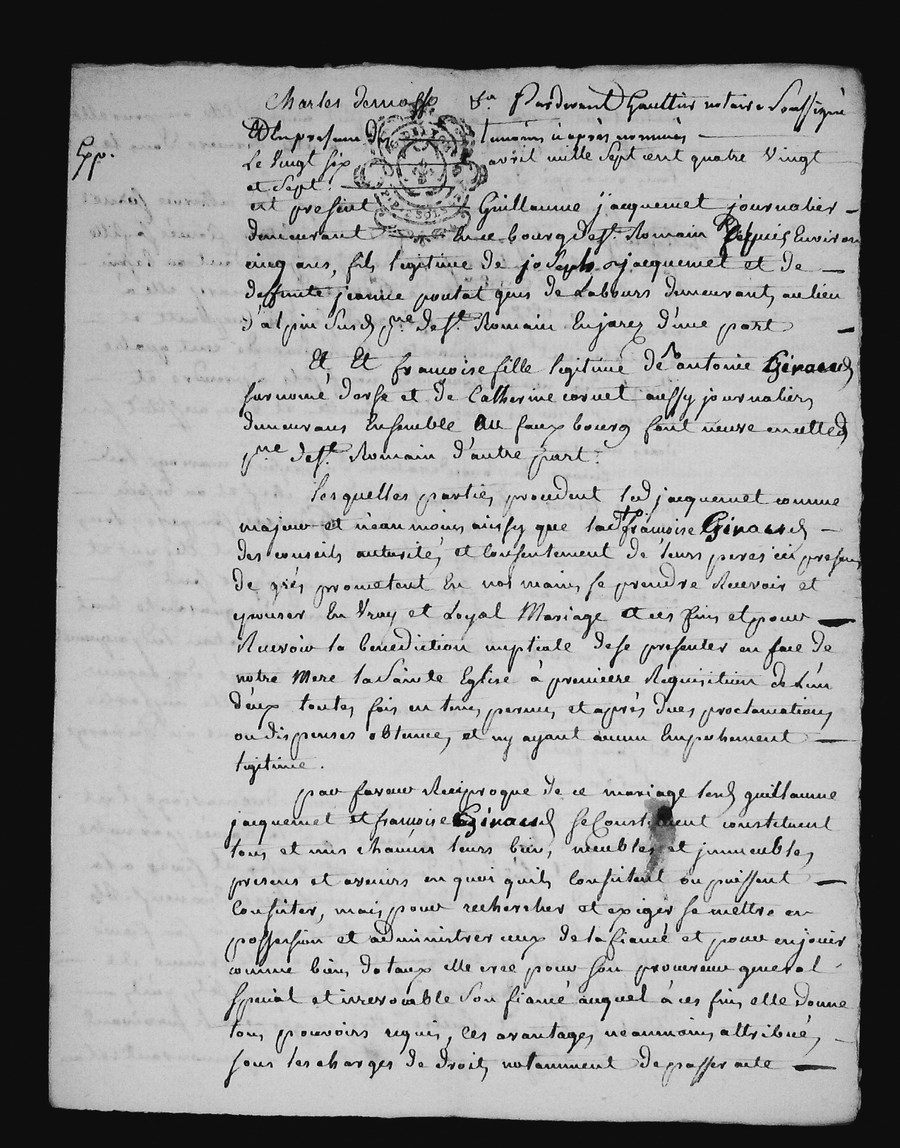 Charles demosse Pardevant Gaultier notaire Soussigné
Et En presence des temoins cy après nommés
Exp.
Le Vingt Six avril mille Sept cent quatre Vingt
et Sept.
est present Guillaume jacquemet journalier
demeurant En ce bourg de St. Romain Depuis Environ
cinq ans, fils legitime de joSeph jacquemet et de
deffunte jeanne poutat gens de Labours demeurants au lieu
d'alpin Susd. pne. de St. Romain En jarez d'une part
Et Et francoise fille legitime de antoine Giraud
surnomé dorse et de Catherine cornet aussy journaliers
demeurans Ensemble au faux bourg font neuve en cette d
pne de St. Romain d'autre part.
Les quelles parties procedent led jacquemet comme
majeur et néanmoins aussy que lad francoise Giraud
des conseils autorité, et Consentement de leurs peres ici presens
de grés promettent En nos mains, se prendre Recevoir et
epouser En Vray et Loyal Mariage et a ces fins et pour
Recevoir la benediction nuptiale de se presenter en face de
notre Mere la Sainte Eglise à premiere Requisition de L'un
d'eux toutes fois en tems permis, et après dues proclamations
ou dispenses obtenues, et ny ayant aucun Empechement
legitime.
par faveur Reciproque de ce mariage lesd guillaume
jacquemet et francoise Giraud Se Constituent constituent
tous et uns chacuns leurs biens, meubles et jmmeubles,
presens et avenirs en quoi quils Consistent ou puissent
Consister, mais pour rechercher et exiger se mettre en
possession et administrer ceux de la fiancé et pour en jouir
comme biens dotaux elle cree pour Son procureur general
Spécial et irrevocable Son fiancé auquel à ces fins, elle donne
tous pouvoirs requis, ces avantages neanmoins attribués,
sous les charges de droits, notamment de passer acte